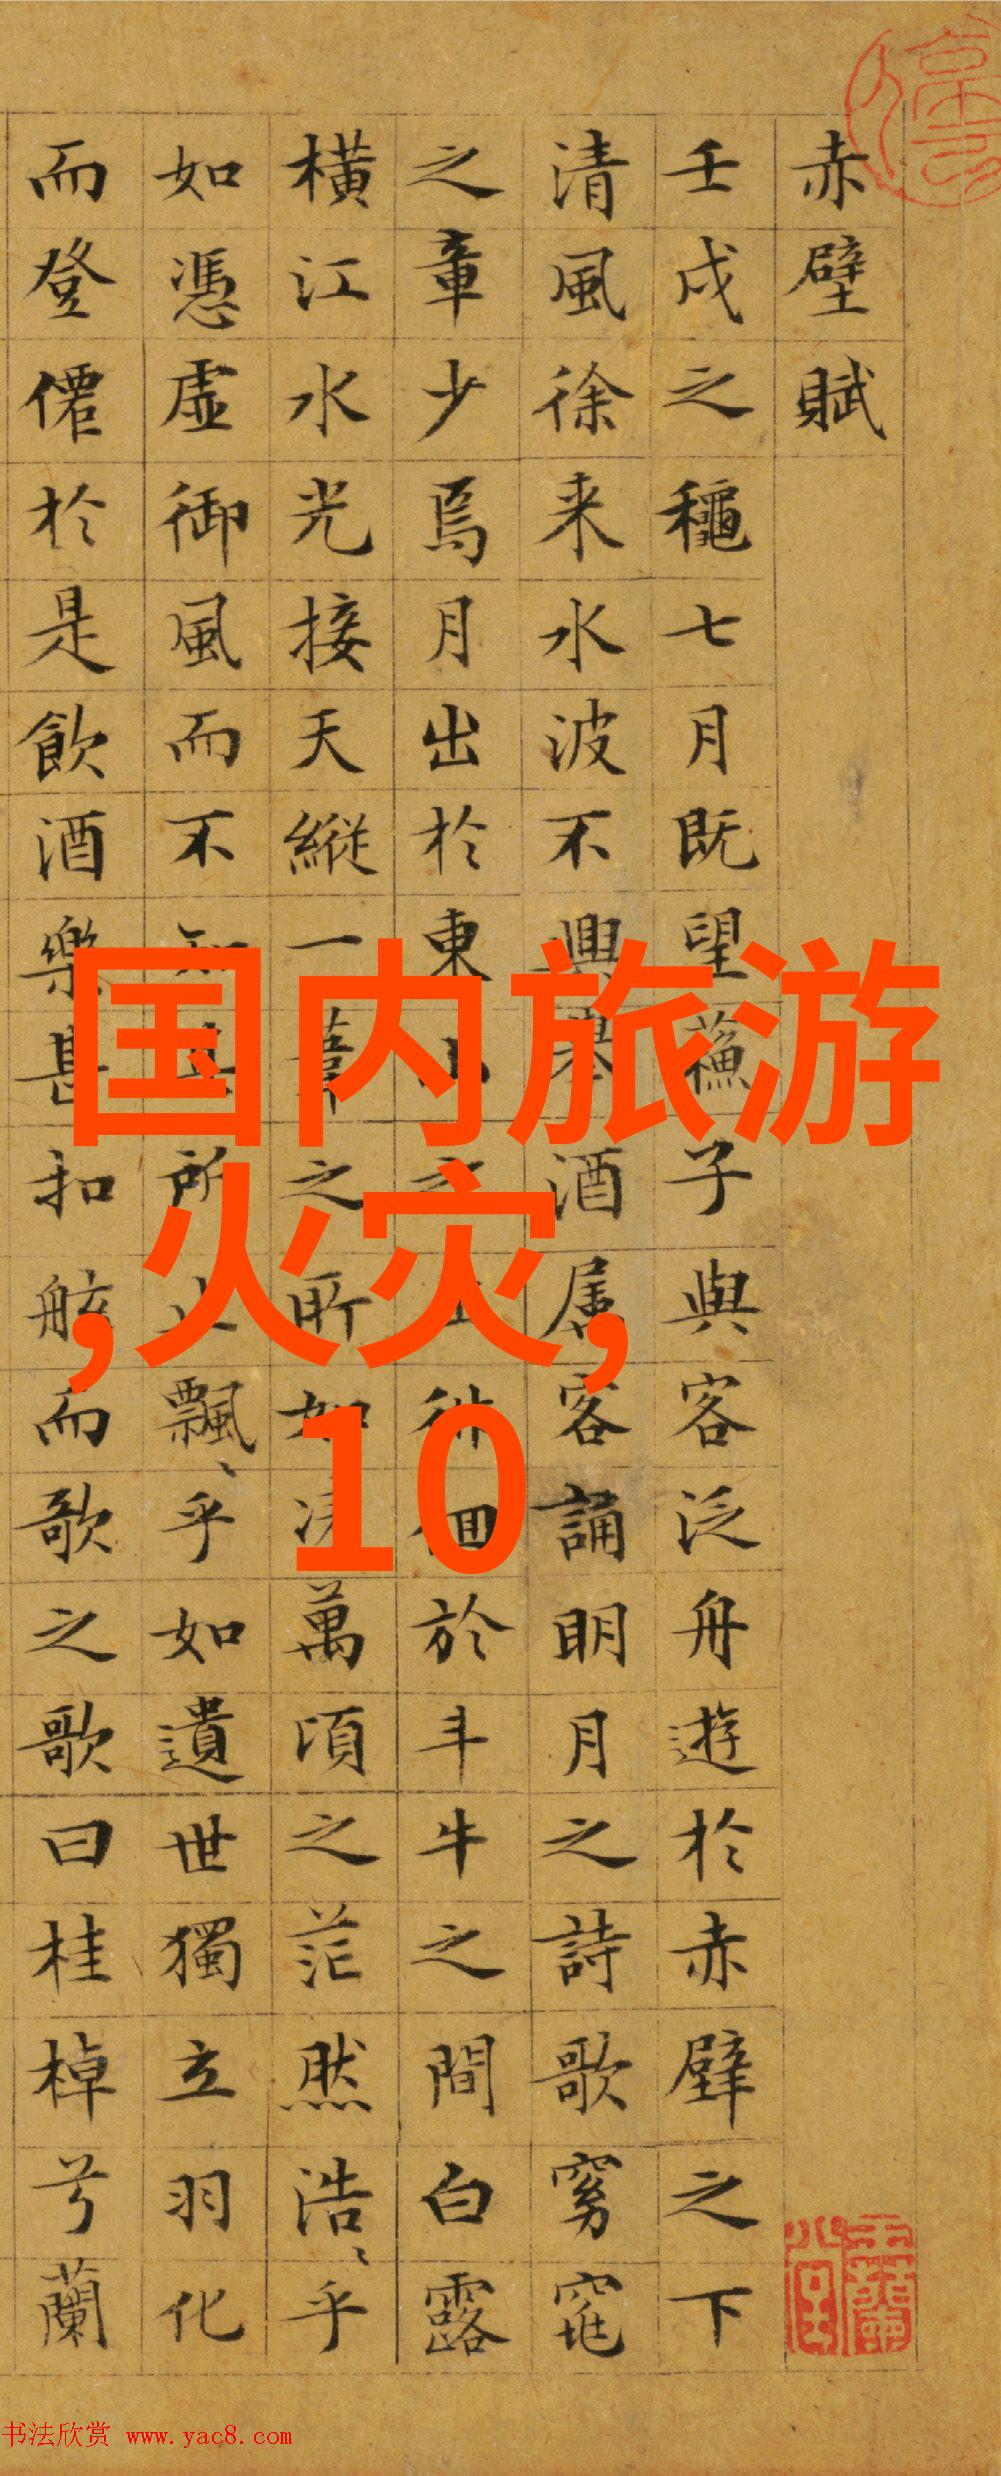 赤壁賦
壬戌之龝七月既望蘓子與客泛舟遊於赤壁之下
清風徐来水波不興舉酒属客誦明月之詩歌窈窕
之章少焉月出於東山之上徘徊於斗牛之間白露
橫江水光接天縱一葦之所如凌萬頃之茫然浩〻乎
如憑虛御風而不知其所止飄〻乎如遺世獨立羽化
而登僊於是飲酒樂甚扣舷而歌之歌曰桂棹兮蘭
国内旅游
,火灾,
10
书法欣赏 www.yac8.com